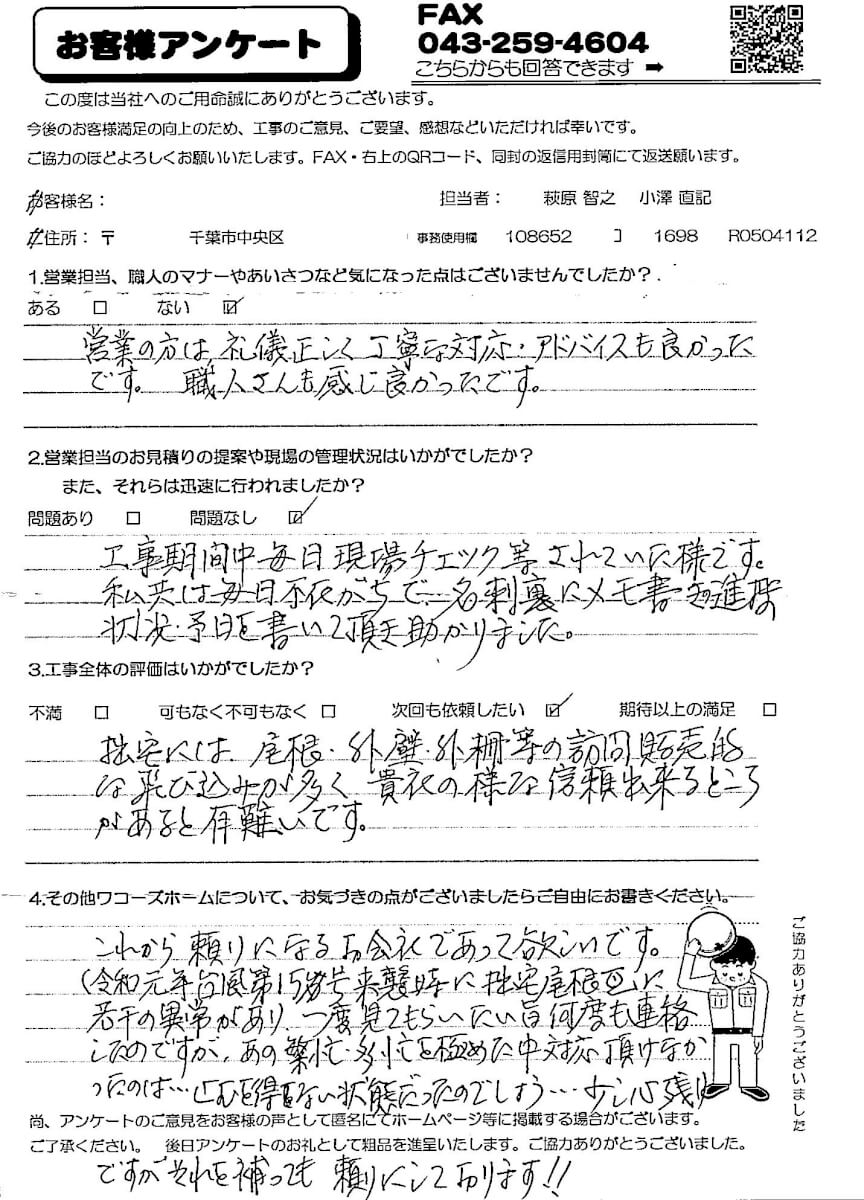 お客様アンケート
FAX
043-259-4604
こちらからも回答できます ➡
この度は当社へのご用命誠にありがとうございます。
今後のお客様満足の向上のため、工事のご意見、ご要望、感想などいただければ幸いです。
ご協力のほどよろしくお願いいたします。FAX・右上のQRコード、同封の返信用封筒にて返送願います。
お客様名： 担当者： 萩原 智之 小澤 直記
ご住所：〒 千葉市中央区 事務使用欄 108652 コ 1698 R0504112
1.営業担当、職人のマナーやあいさつなど気になった点はございませんでしたか？
ある □ ない ☑
営業の方は、礼儀正しく丁寧な対応・アドバイスも良かった
です。 職人さんも感じ良かったです。
2.営業担当のお見積りの提案や現場の管理状況はいかがでしたか？
また、それらは迅速に行われましたか？
問題あり □ 問題なし ☑
工事期間中毎日現場チェック等されていた様です。
私共は毎日不在がちで、名刺裏にメモ書き
状況・予日を書いて頂き助かりました。
3.工事全体の評価はいかがでしたか？
不満 □ 可もなく不可もなく □ 次回も依頼したい ☑ 期待以上の満足 □
拙宅には、屋根・外壁・外柵等の訪問販売的
な飛び込みが多く 貴社の様な信頼出来るところ
があると有難いです。
4.その他ワコーズホームについて、お気づきの点がございましたらご自由にお書きください。
これから頼りになるお会社であって欲しいです。
(令和元年台風第15号来襲時に拙宅屋根に
若干の異常があり、一度見てもらいたい旨何度も連絡
したのですが、あの繁忙・多忙を極めた中対応頂けなか
ったのは…止むを得ない状態だったのでしょう…少し心残り
尚、アンケートのご意見をお客様の声として匿名にてホームページ等に掲載する場合がございます。
ご了承ください。 後日アンケートのお礼として粗品を進呈いたします。ご協力ありがとうございました。
ですがそれを補っても 頼りにしております!!
ご協力ありがとうございました